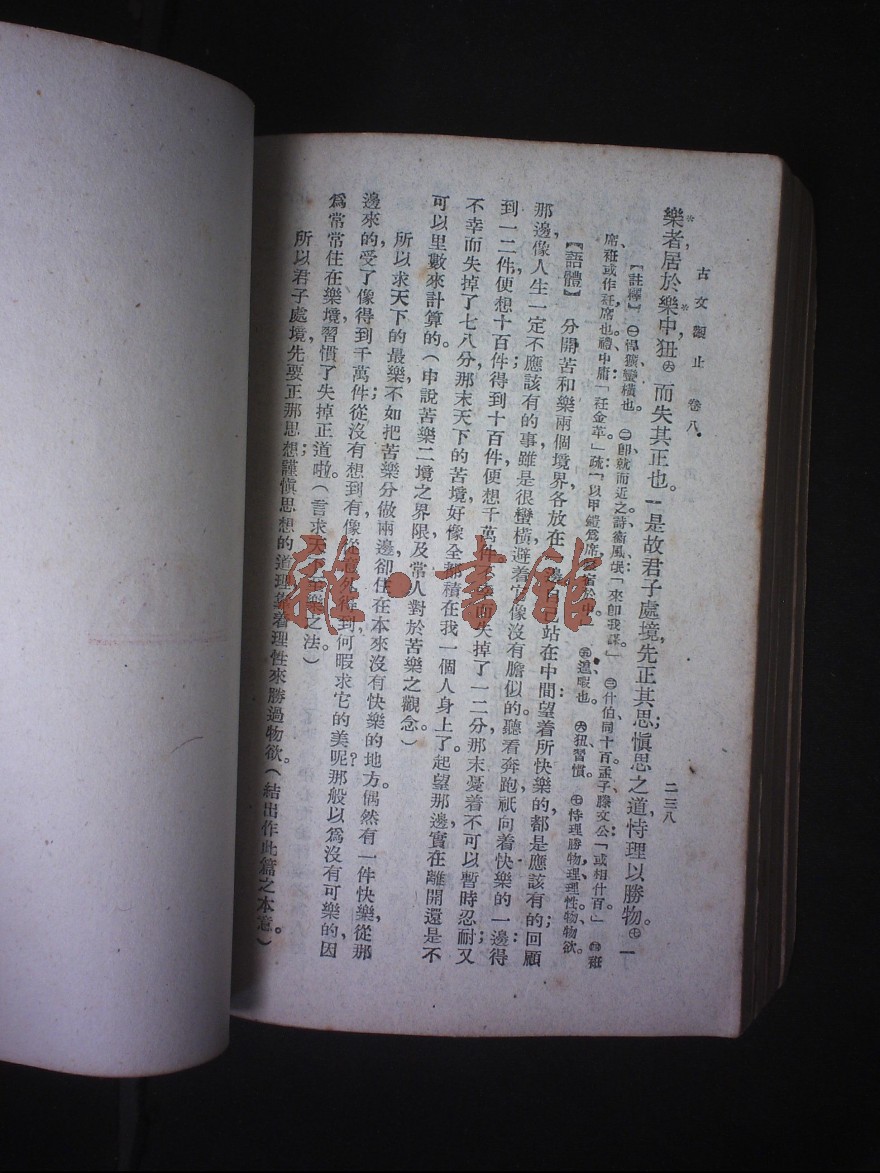 古文觀止 卷八 二三八
樂者,居於樂中,狃㊅而失其正也。一是故君子處境,先正其思;愼思之道,恃理以勝物。㊆一
【註釋】㊀悍獷,蠻橫也。㊁卽,就而近之。詩衞風氓:「來卽我謀。」㊂什伯同十百。孟子滕文公:「或相什百。」㊃衽
席,衽或作袵,席也。禮中庸「衽金革」疏:「以甲鎧爲席,寢宿於中。」㊄遑,暇也。㊅狃,習慣。㊆恃理勝物,理,理性,物,物欲。
【語體】分開苦和樂兩個境界,各放在一邊,自己站在中間望着:所快樂的,都是應該有的;回顧
那邊,像人生一定不應該有的事,雖是很蠻橫,避着它像沒有膽似的。聽看奔跑,祇向着快樂的一邊:得
到一二件,便想十百件;得到十百件,便想千萬件。不幸而失掉了一二分,那末憂着不可以暫時忍耐;又
不幸而失掉了七八分,那末天下的苦境,好像全都積在我一個人身上了。起望那邊,實在離開還是不
可以里數來計算的。(申說苦樂二境之界限,及常人對於苦樂之觀念。)
所以求天下的最樂,不如把苦樂分做兩邊,卻住在本來沒有快樂的地方。偶然有一件快樂,從那
邊來的,受了像得到千萬件;從沒有想到有,像從 得到,何暇求它的美呢?那般以爲沒有可樂的,因
爲常常住在樂境,習慣了失掉正道啦。(言求天下至樂之法。)
所以君子處境,先要正那思想;謹愼思想的道理,靠着理性來勝過物欲。(結出作此篇之本意。)
雜·書館